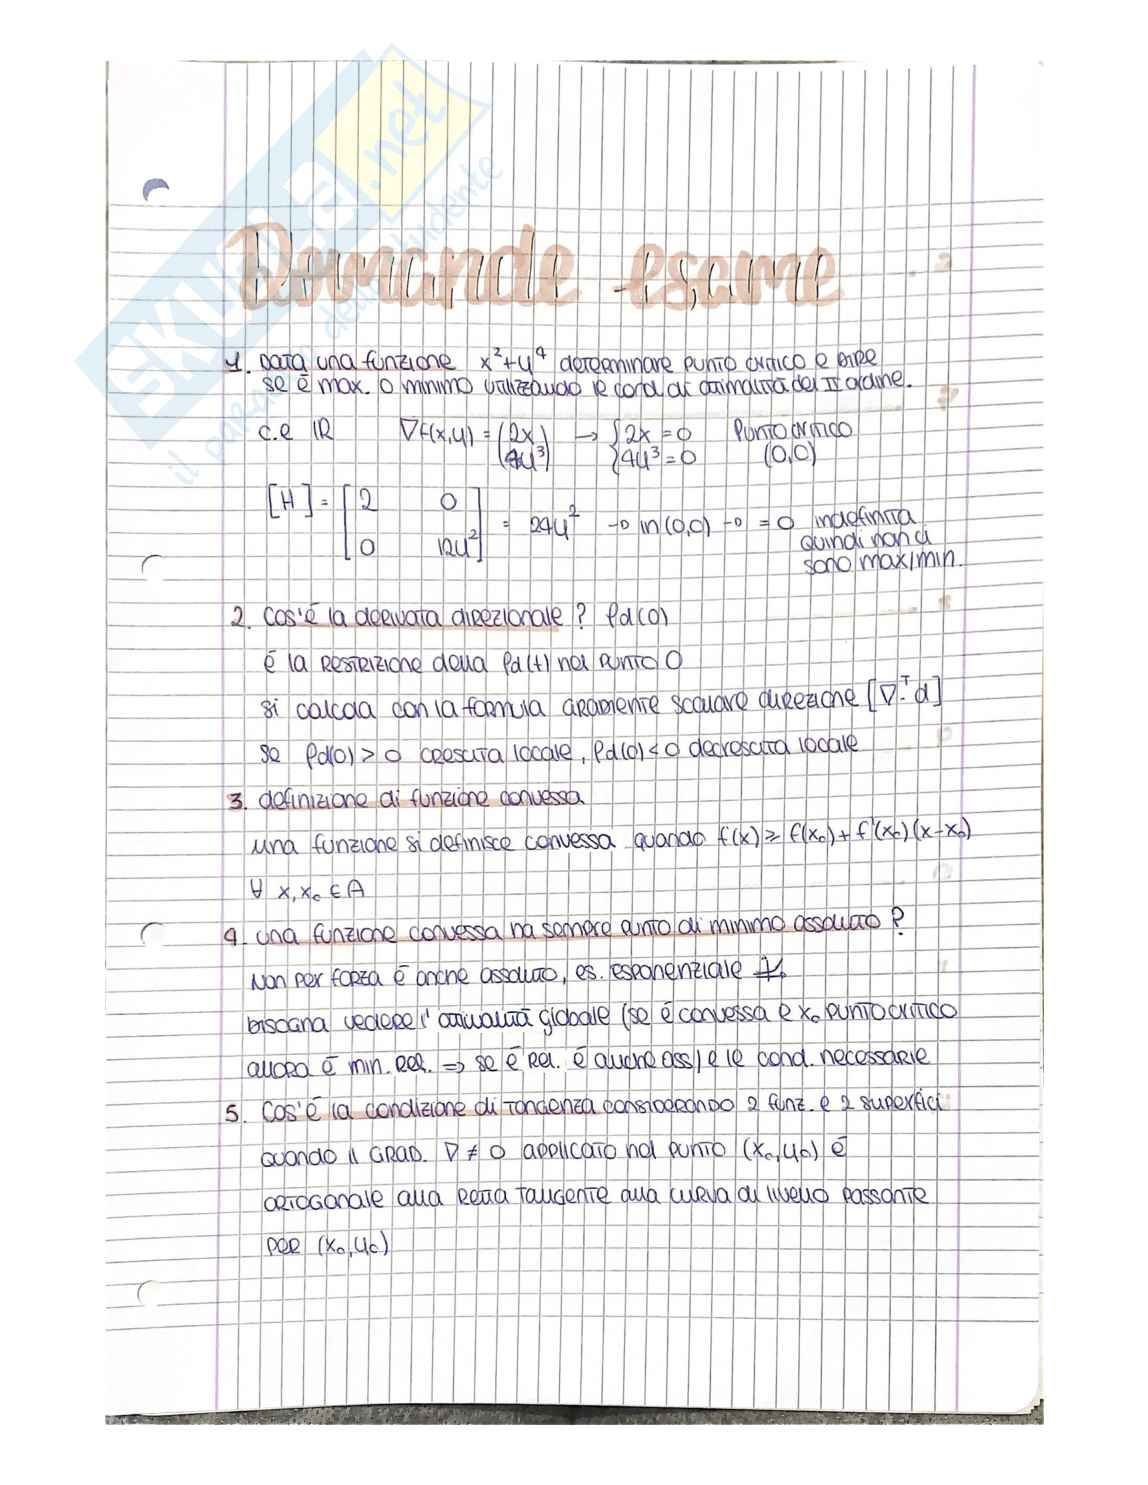 SKUOLA.net
il paradiso dello studente
Domande esame
1. Data una funzione x²+y⁴ determinare punto critico e dire
se è max. o minimo utilizzando le cond. di ottimalità del II ordine.
c.e ℝ ∇f(x,y) = (2x 4y³) → {2x = 0 4y³ = 0 Punto critico (0,0)
[H] = [2 0 0 12y²] = 24y² → in (0,0) → = 0 indefinita
quindi non ci
sono max/min.
2. Cos'è la derivata direzionale? φd(0)
è la restrizione della φd(t) nel punto 0
si calcola con la formula gradiente scalare direzione [∇ᵀ· d]
se φd(0) > 0 crescita locale, φd(0) < 0 decrescita locale
3. definizione di funzione convessa
una funzione si definisce convessa quando f(x) ≥ f(x₀) + f'(x₀)(x-x₀)
∀ x, x₀ ∈ A
4. una funzione convessa ha sempre punto di minimo assoluto?
Non per forza è anche assoluto, es. esponenziale
bisogna vedere l'ottimalità globale (se è convessa e x₀ punto critico
allora è min. rel. ⇒ se è rel. è anche ass) e le cond. necessarie
5. Cos'è la condizione di tangenza considerando 2 funz. e 2 superfici
quando il grad. ∇ ≠ 0 applicato nel punto (x₀,y₀) è
ortogonale alla retta tangente alla curva di livello passante
per (x₀,y₀)